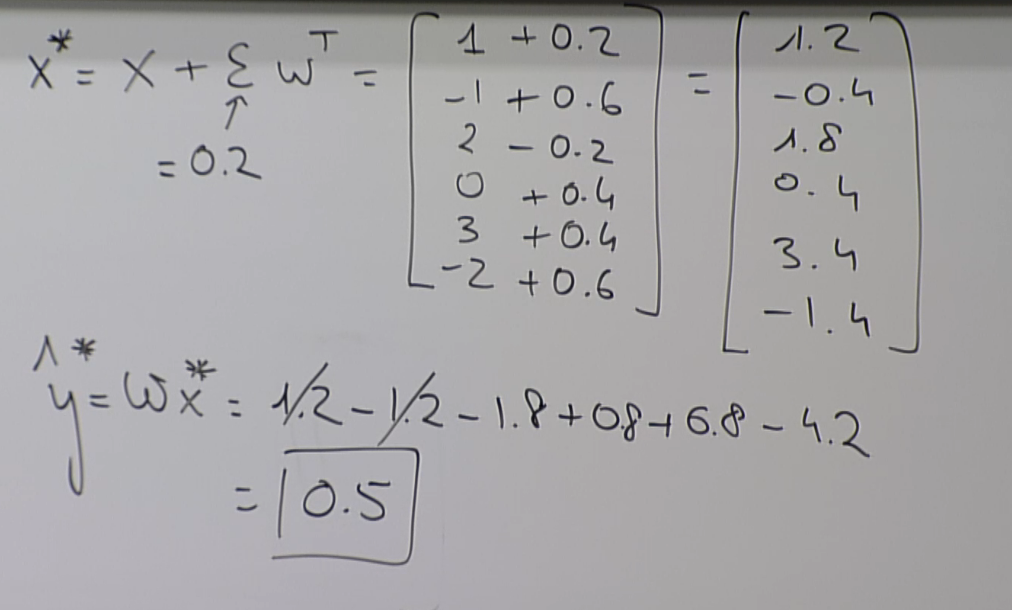 x* = x + ε w^T = [1 + 0.2; -1 + 0.6; 2 - 0.2; 0 + 0.4; 3 + 0.4; -2 + 0.6] = [1.2; -0.4; 1.8; 0.4; 3.4; -1.4]
↑
= 0.2
ŷ* = wx* = 1.2 - 1.2 - 1.8 + 0.8 + 6.8 - 4.2
= 0.5